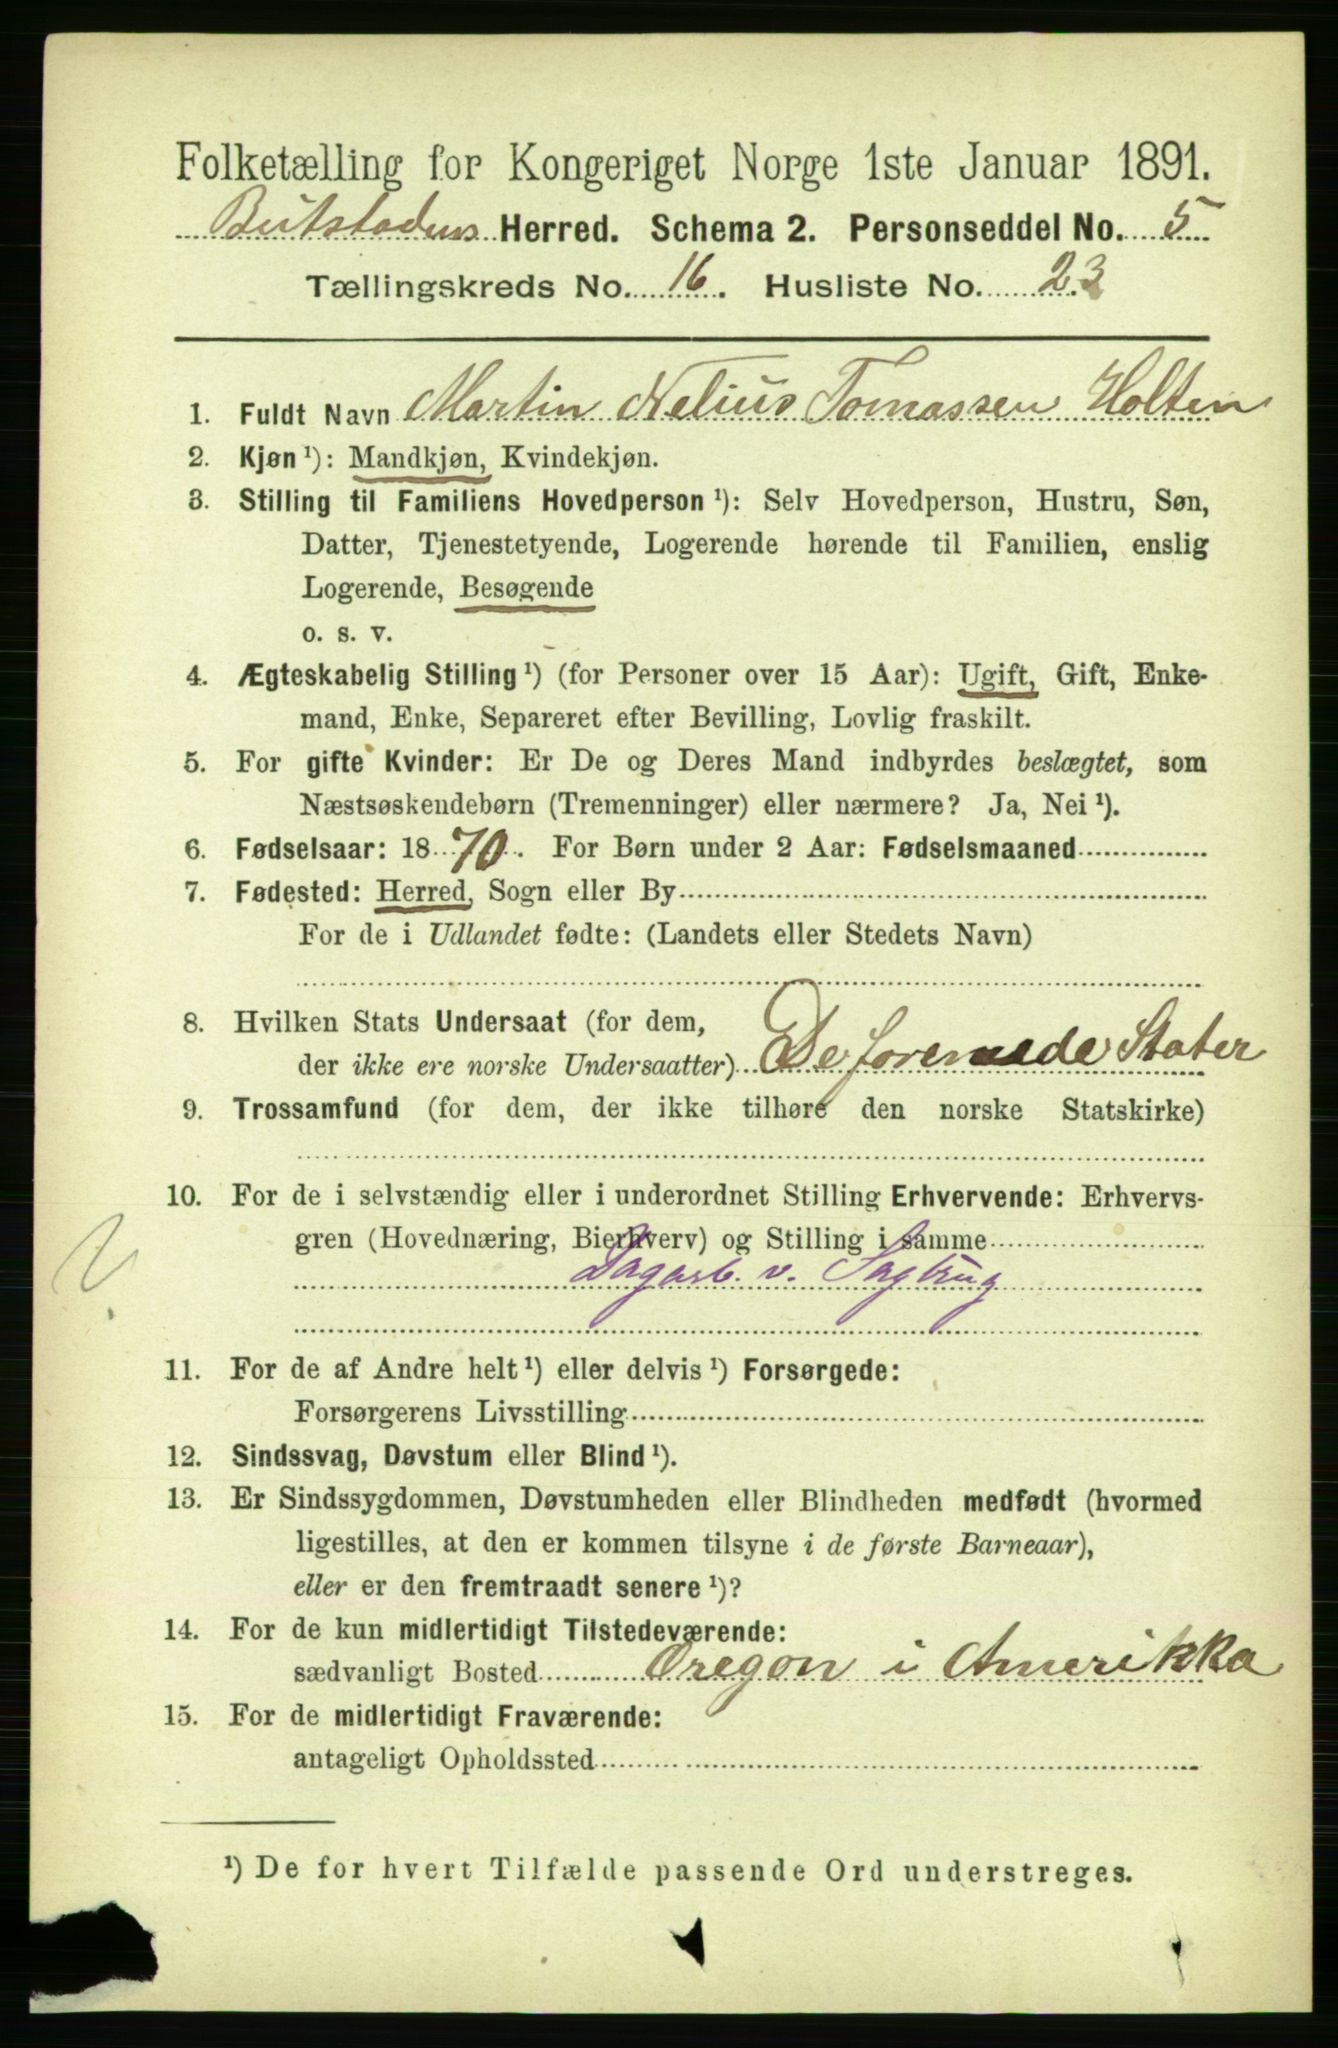 Folketælling for Kongeriget Norge 1ste Januar 1891.
Beitstadens Herred. Schema 2. Personseddel No. 5
Tællingskreds No. 16. Husliste No. 23
1. Fuldt Navn Martin Nelius Tomassen Holten
2. Kjøn ¹): Mandkjøn, Kvindekjøn.
3. Stilling til Familiens Hovedperson ¹): Selv Hovedperson, Hustru, Søn,
Datter, Tjenestetyende, Logerende hørende til Familien, enslig
Logerende, Besøgende
o. s. v.
4. Ægteskabelig Stilling ¹) (for Personer over 15 Aar): Ugift, Gift, Enke-
mand, Enke, Separeret efter Bevilling, Lovlig fraskilt.
5. For gifte Kvinder: Er De og Deres Mand indbyrdes beslægtet, som
Næstsøskendebørn (Tremenninger) eller nærmere? Ja, Nei ¹).
6. Fødselsaar: 1870. For Børn under 2 Aar: Fødselsmaaned
7. Fødested: Herred, Sogn eller By
For de i Udlandet fødte: (Landets eller Stedets Navn)
8. Hvilken Stats Undersaat (for dem,
der ikke ere norske Undersaatter) De forenede Stater
9. Trossamfund (for dem, der ikke tilhøre den norske Statskirke)
10. For de i selvstændig eller i underordnet Stilling Erhvervende: Erhvervs-
gren (Hovednæring, Bierhverv) og Stilling i samme
Dagarb. v. Sagbrug
11. For de af Andre helt ¹) eller delvis ¹) Forsørgede:
Forsørgerens Livsstilling
12. Sindssvag, Døvstum eller Blind ¹).
13. Er Sindssygdommen, Døvstumheden eller Blindheden medfødt (hvormed
ligestilles, at den er kommen tilsyne i de første Barneaar),
eller er den fremtraadt senere ¹)?
14. For de kun midlertidigt Tilstedeværende:
sædvanligt Bosted Oregon i Amerikka
15. For de midlertidigt Fraværende:
antageligt Opholdssted
¹) De for hvert Tilfælde passende Ord understreges.